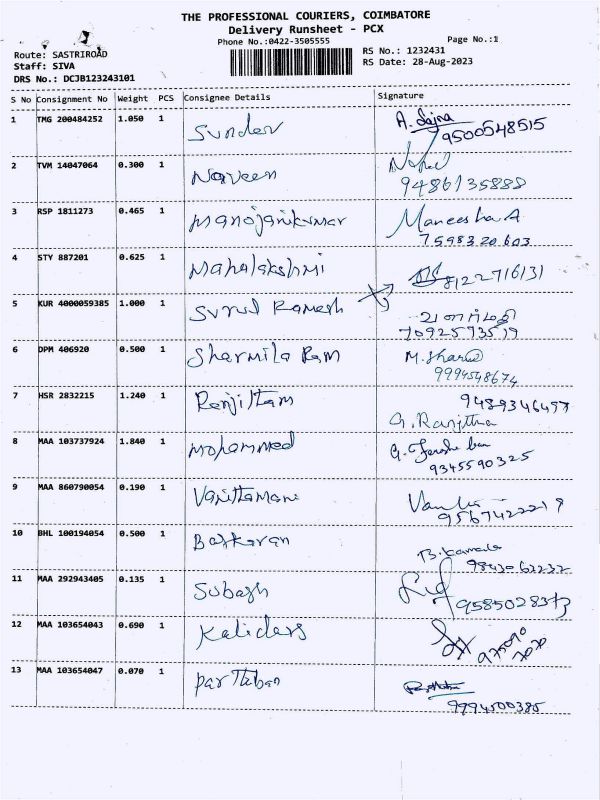 THE PROFESSIONAL COURIERS, COIMBATORE
Delivery Runsheet - PCX
Phone No.:0422-3505555
Page No.:1
Route: SASTRIROAD
Staff: SIVA
DRS No.: DCJB123243101
RS No.: 1232431
RS Date: 28-Aug-2023
S No Consignment No Weight PCS Consignee Details Signature
1 TMG 200484252 1.050 1 Sunder A. Sajna
9500548515
2 TVM 14047064 0.300 1 Naveen
9486135888
3 RSP 1811273 0.465 1 Manojanikumar Maneesha A
7598320603
4 STY 887201 0.625 1 Mahalakshmi 8122716131
5 KUR 4000059385 1.000 1 Sunil Ramesh வளர்மதி
7092573519
6 DPM 406920 0.500 1 Sharmila Ram M. Sharmi
9994548674
7 HSR 2832215 1.240 1 Ranjitham 9489346497
G. Ranjitha
8 MAA 103737924 1.840 1 Mohammed
9345590325
9 MAA 860790054 0.190 1 Vanithamani
9567422219
10 BHL 100194054 0.500 1 Baskaran B. Kamala
11 MAA 292943405 0.135 1 Subash
12 MAA 103654043 0.690 1 Kalidass
13 MAA 103654047 0.070 1 Parthiban
9994500385